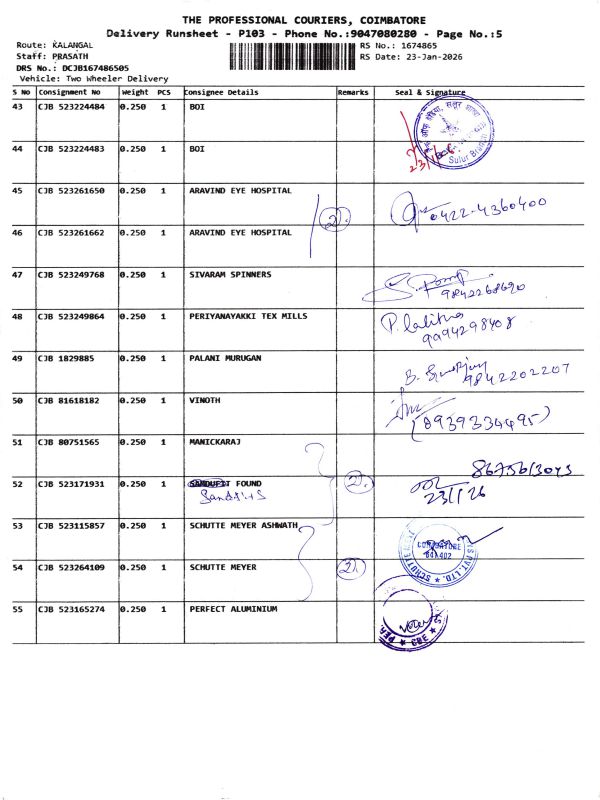 THE PROFESSIONAL COURIERS, COIMBATORE
Delivery Runsheet - P103 - Phone No.:9047080280 - Page No.:5
Route: KALANGAL
RS No.: 1674865
Staff: PRASATH
RS Date: 23-Jan-2026
DRS No.: DCJB167486505
Vehicle: Two Wheeler Delivery
S No Consignment No Weight PCS Consignee Details Remarks Seal & Signature
43 CJB 523224484 0.250 1 BOI
Sulur Branch
44 CJB 523224483 0.250 1 BOI
45 CJB 523261650 0.250 1 ARAVIND EYE HOSPITAL
(2). 0422-4360400
46 CJB 523261662 0.250 1 ARAVIND EYE HOSPITAL
47 CJB 523249768 0.250 1 SIVARAM SPINNERS
9842268690
48 CJB 523249864 0.250 1 PERIYANAYAKKI TEX MILLS
P. Lalitha
9994298408
49 CJB 1829885 0.250 1 PALANI MURUGAN
9842202207
50 CJB 81618182 0.250 1 VINOTH
(8939334495)
51 CJB 80751565 0.250 1 MANICKARAJ
52 CJB 523171931 0.250 1 FOUND
(2).
23/1/26
53 CJB 523115857 0.250 1 SCHUTTE MEYER ASHWATH
COIMBATORE
641 402
54 CJB 523264109 0.250 1 SCHUTTE MEYER
(2).
55 CJB 523165274 0.250 1 PERFECT ALUMINIUM
CBE